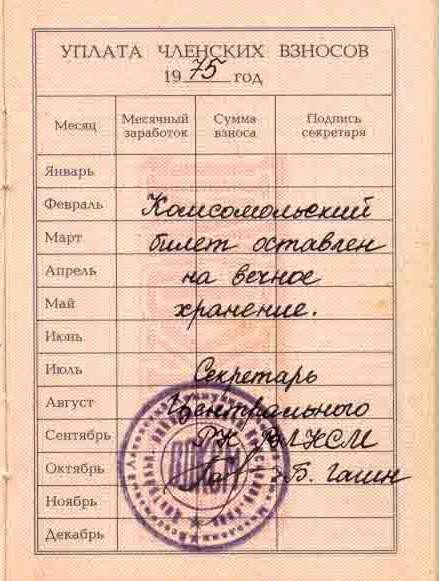 УПЛАТА ЧЛЕНСКИХ ВЗНОСОВ
1975 год
Месяц
Месячный заработок
Сумма взноса
Подпись секретаря
Январь
Февраль
Март
Апрель
Май
Июнь
Июль
Август
Сентябрь
Октябрь
Ноябрь
Декабрь
Комсомольский
билет оставлен
на вечное
хранение.
Секретарь
Центрального
РК ВЛКСМ
Б. Гашин